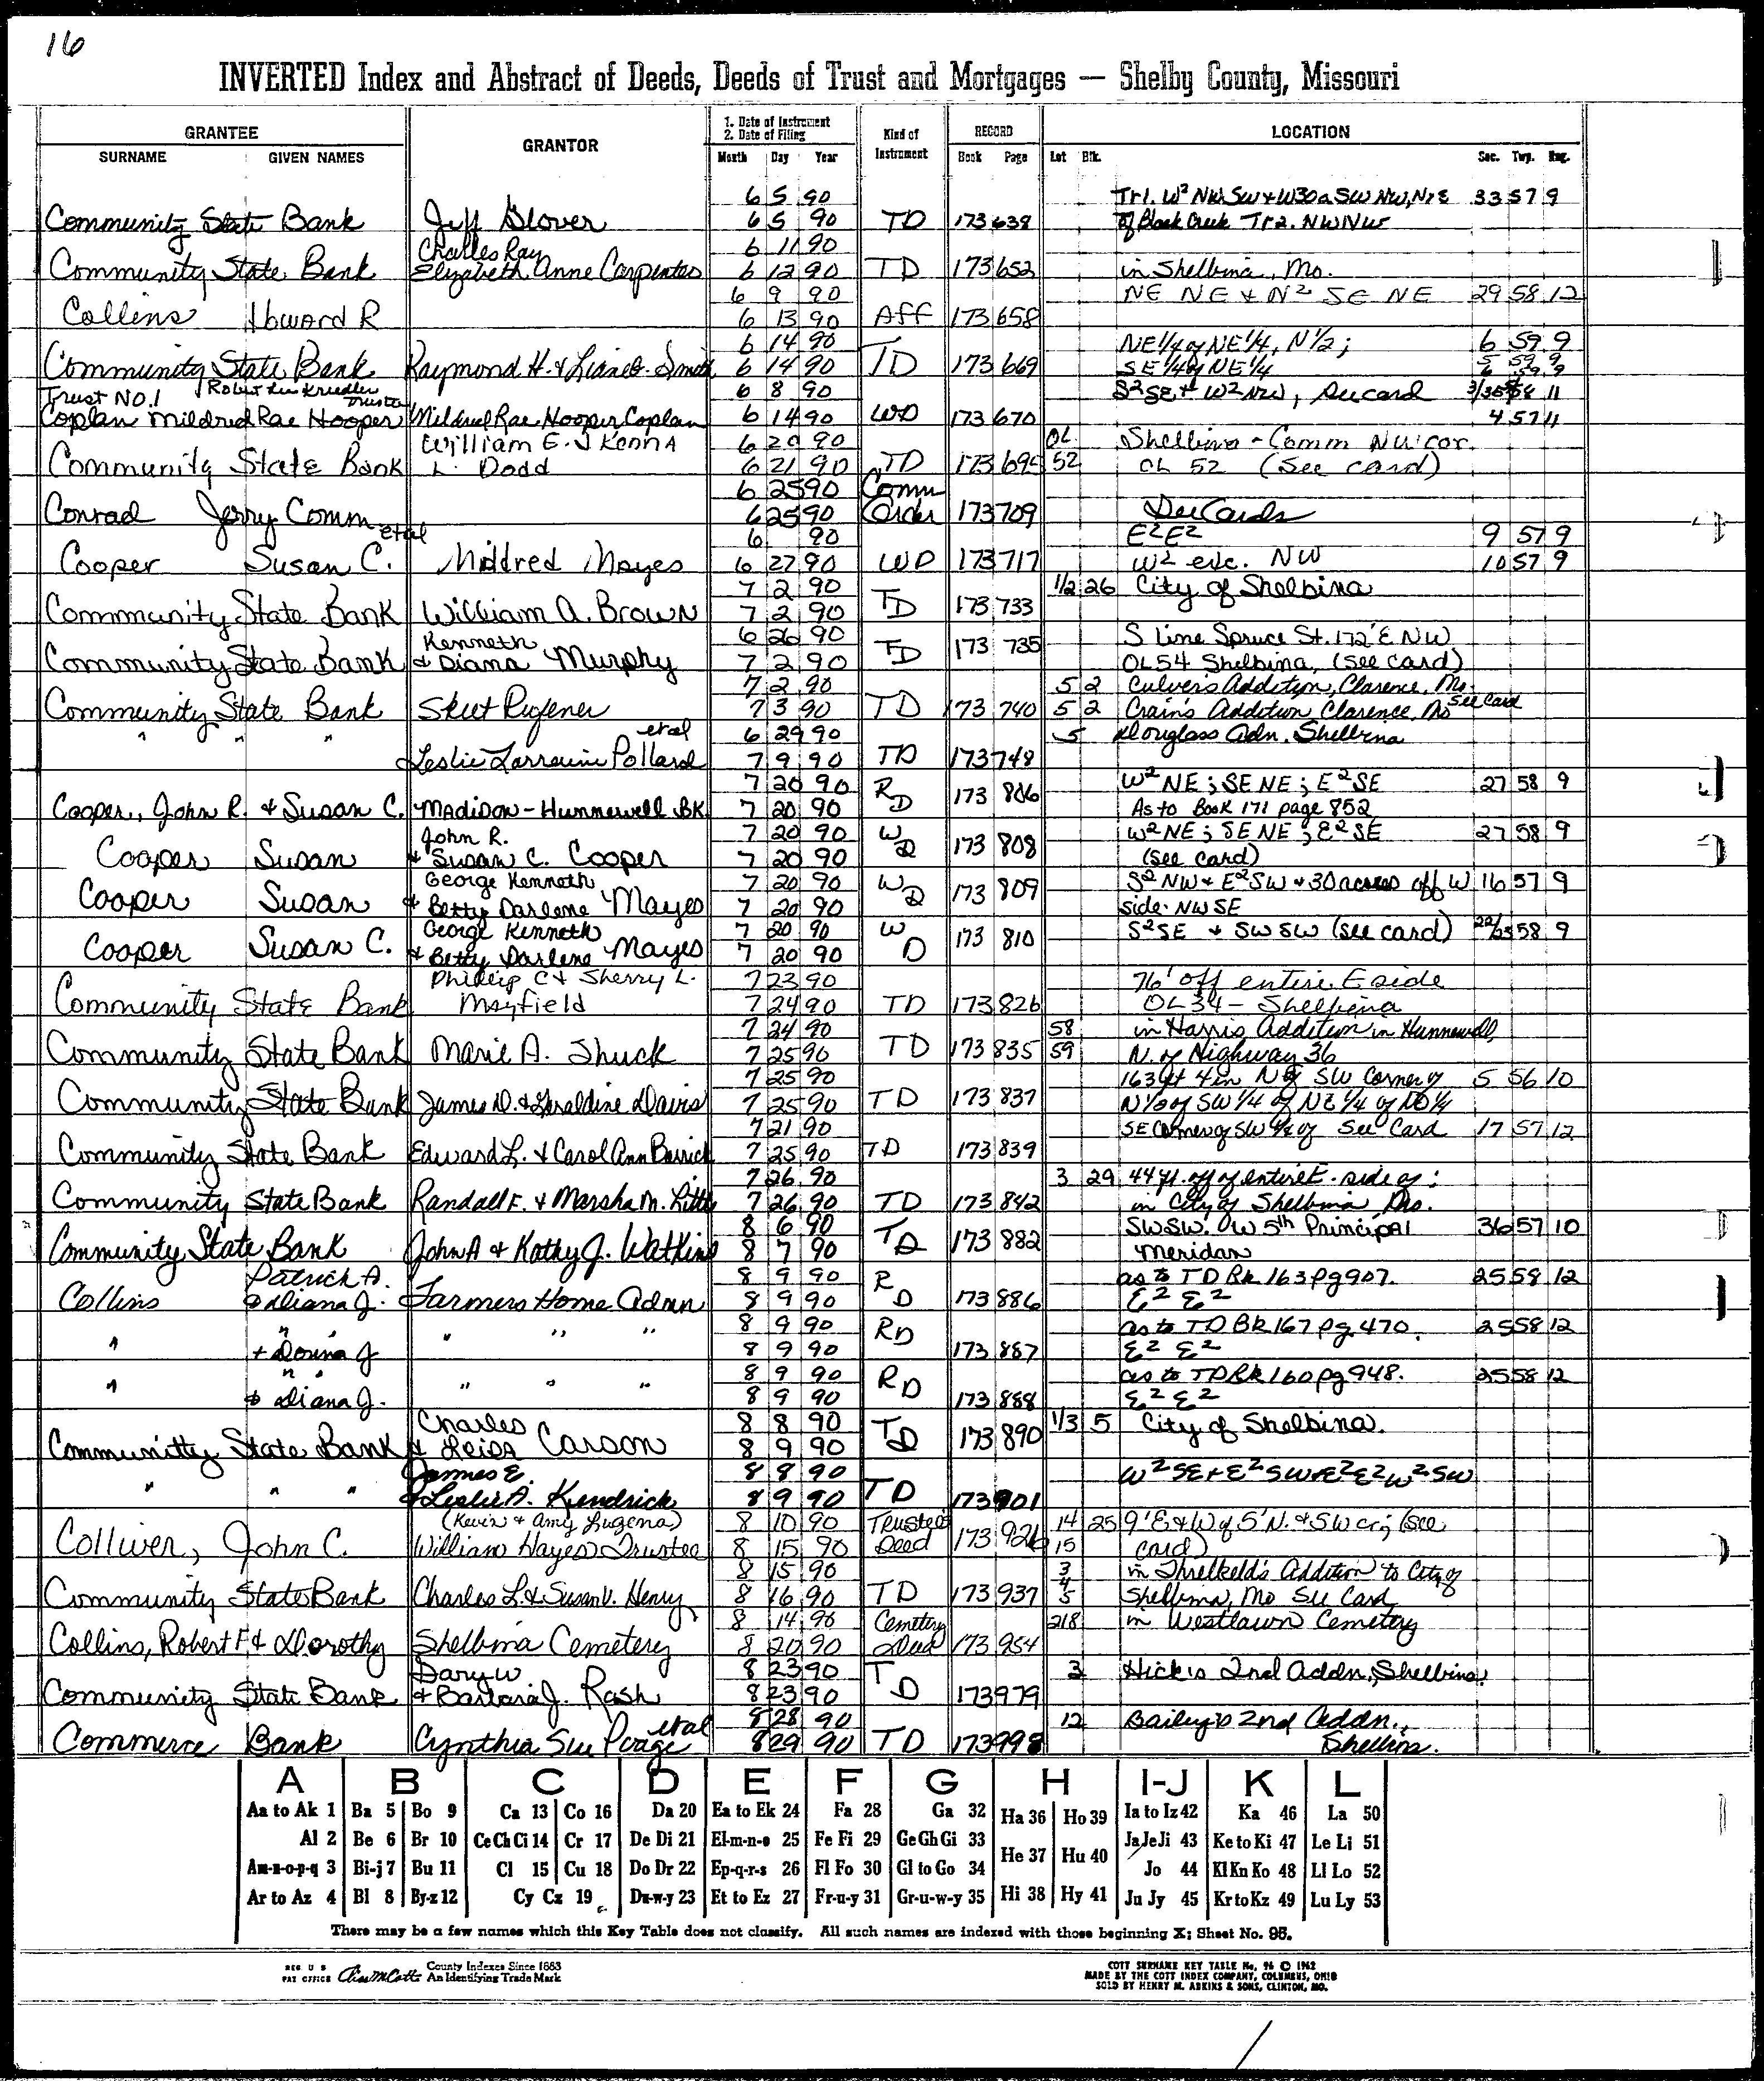 16
INVERTED Index and Abstract of Deeds, Deeds of Trust and Mortgages — Shelby County, Missouri
GRANTEE GRANTOR 1. Date of Instrument 2. Date of Filing Kind of Instrument RECORD LOCATION
SURNAME GIVEN NAMES Month Day Year Book Page Lot Blk. Sec. Twp. Rng.
6 5 90 Tr1. W² NW SW & W30a SW NW, N & E 33 57 9
Community State Bank Jeff Glover 6 5 90 TD 173 638 of Black Creek Tr2. NWNW
Charles Ray 6 11 90
Community State Bank Elizabeth Anne Carpenter 6 12 90 TD 173 652 in Shelbina, Mo.
6 9 90 NE NE & N² SE NE 29 58 12
Collins Howard R 6 13 90 Aff 173 658
6 14 90 NE1/4 of NE1/4, N1/2; 6 59 9
Community State Bank Raymond H. & Smith 6 14 90 TD 173 669 SE1/4 of NE1/4 5 59 9
Trust No. 1 Trustee 6 8 90 S²SE & W²NW, See card 58 11
Coplan Mildred Rae Hooper Mildred Rae Hooper Coplan 6 14 90 WD 173 670 4 57 11
William E. & Kenna 6 20 90 OL Shelbina - Comm NW cor.
Community State Bank L. Dodd 6 21 90 TD 173 695 52 OL 52 (See card)
6 25 90 Comm
Conrad Jerry Comm etal 6 25 90 Order 173 709 See Cards
6 90 E²E² 9 57 9
Cooper Susan C. Mildred Mayes 6 27 90 WD 173 717 W² exc. NW 10 57 9
7 2 90 1/2 26 City of Shelbina
Community State Bank William A. Brown 7 2 90 TD 173 733
Kenneth 6 26 90 S Line Spruce St. 172' E NW
Community State Bank & Diana Murphy 7 2 90 TD 173 735 OL54 Shelbina, (see card)
7 2 90 5 2 Culver's Addition, Clarence, Mo.
Community State Bank Skeet 7 3 90 TD 173 740 5 2 Crain's Addition Clarence, Mo See Card
" " " etal 6 29 90 5 Douglass Adn. Shelbina
Leslie Larraine Pollard 7 9 90 TD 173 748
7 20 90 W² NE; SE NE; E²SE 27 58 9
Cooper, John R. & Susan C. Madison-Hunnewell BK. 7 20 90 RD 173 806 As to Book 171 page 852
John R. 7 20 90 W²NE; SE NE; E²SE 27 58 9
Cooper Susan & Susan C. Cooper 7 20 90 WD 173 808 (see card)
George Kenneth 7 20 90 S² NW & E²SW & 30 acres off W 16 57 9
Cooper Susan & Betty Darlene Mayes 7 20 90 WD 173 809 side NWSE
George Kenneth 7 20 90 S²SE & SW SW (see card) 58 9
Cooper Susan C. & Betty Darlene Mayes 7 20 90 WD 173 810
Phillip C & Sherry L. 7 23 90 76' off entire E side
Community State Bank Mayfield 7 24 90 TD 173 826 OL 34 - Shelbina
7 24 90 58 in Harris Addition in Hunnewell,
Community State Bank Marie A. Shuck 7 25 90 TD 173 835 59 N. of Highway 36
7 25 90 163 ft 4 in N of SW Corner of 5 56 10
Community State Bank James D. & Geraldine Davis 7 25 90 TD 173 837 N1/2 of SW 1/4 of NE 1/4 of
7 21 90 SE Corner of SW 1/4 of See Card 17 57 12
Community State Bank Edward L. & Carol Ann 7 25 90 TD 173 839
7 26 90 3 29 44 ft. off of entire E. side of;
Community State Bank Randall F. & Marsha M. Little 7 26 90 TD 173 842 in City of Shelbina, Mo.
8 6 90 SWSW. OW 5th Principal 36 57 10
Community State Bank John A & Kathy J. Watkins 8 7 90 TD 173 882 Meridan
Patrick A. 8 9 90 as to TD Bk 163 pg 907. 25 58 12
Collins & Diana J. Farmers Home Admn 8 9 90 RD 173 886 E² E²
" " " 8 9 90 as to TD BK 167 pg. 470. 25 58 12
" & Donna J " " " 8 9 90 RD 173 887 E² E²
" " 8 9 90 as to TD Bk 160 pg 948. 25 58 12
" & Diana J. " " " 8 9 90 RD 173 888 E² E²
Charles 8 8 90 1/3 5 City of Shelbina.
Communitty State Bank & Leisa Carson 8 9 90 TD 173 890
James E. 8 8 90 W²SE & E²SW & E²E²W²SW
" " " & Leslie A. Kendrick 8 9 90 TD 173 901
(Kevin & Amy Lugena) 8 10 90 Trustee 14 25 9' E & W of 5' N. & SW cr; (see
Colliver, John C. William Hayes Trustee 8 15 90 Deed 173 926 15 card)
8 15 90 3 in Threlkeld's Addition to City of
Community State Bank Charles L. & Susan V. Henry 8 16 90 TD 173 937 4 5 Shelbina, Mo See Card
8 14 90 Cemetery 218 in Westlawn Cemetery
Collins, Robert F. & Dorothy Shelbina Cemetery 8 20 90 Deed 173 954
Gary W 8 23 90 3 Hick's 2nd Addn., Shelbina.
Community State Bank & Barbara J. Rash 8 23 90 TD 173 979
etal 8 28 90 12 Bailey's 2nd Addn.,
Commerce Bank Cynthia Sue 8 29 90 TD 173 998 Shelbina.
A B C D E F G H I-J K L
Aa to Ak 1 Ba 5 Bo 9 Ca 13 Co 16 Da 20 Ea to Ek 24 Fa 28 Ga 32 Ha 36 Ho 39 Ia to Iz 42 Ka 46 La 50
Al 2 Be 6 Br 10 Ce Ch Ci 14 Cr 17 De Di 21 El-m-n-o 25 Fe Fi 29 Ge Gh Gi 33 He 37 Hu 40 Ja Je Ji 43 Ke to Ki 47 Le Li 51
Am-n-o-p-q 3 Bi-j 7 Bu 11 Cl 15 Cu 18 Do Dr 22 Ep-q-r-s 26 Fl Fo 30 Gl to Go 34 Jo 44 Kl Kn Ko 48 Ll Lo 52
Ar to Az 4 Bl 8 By-z 12 Cy Cz 19 Du-w-y 23 Et to Ez 27 Fr-u-y 31 Gr-u-w-y 35 Hi 38 Hy 41 Ju Jy 45 Kr to Kz 49 Lu Ly 53
There may be a few names which this Key Table does not classify. All such names are indexed with those beginning X; Sheet No. 95.
REG U S PAT OFFICE County Indexes Since 1883 An Identifying Trade Mark
COTT SURNAME KEY TABLE No. 96 © 1962
MADE BY THE COTT INDEX COMPANY, COLUMBUS, OHIO
SOLD BY HENRY M. ADKINS & SONS, CLINTON, MO.